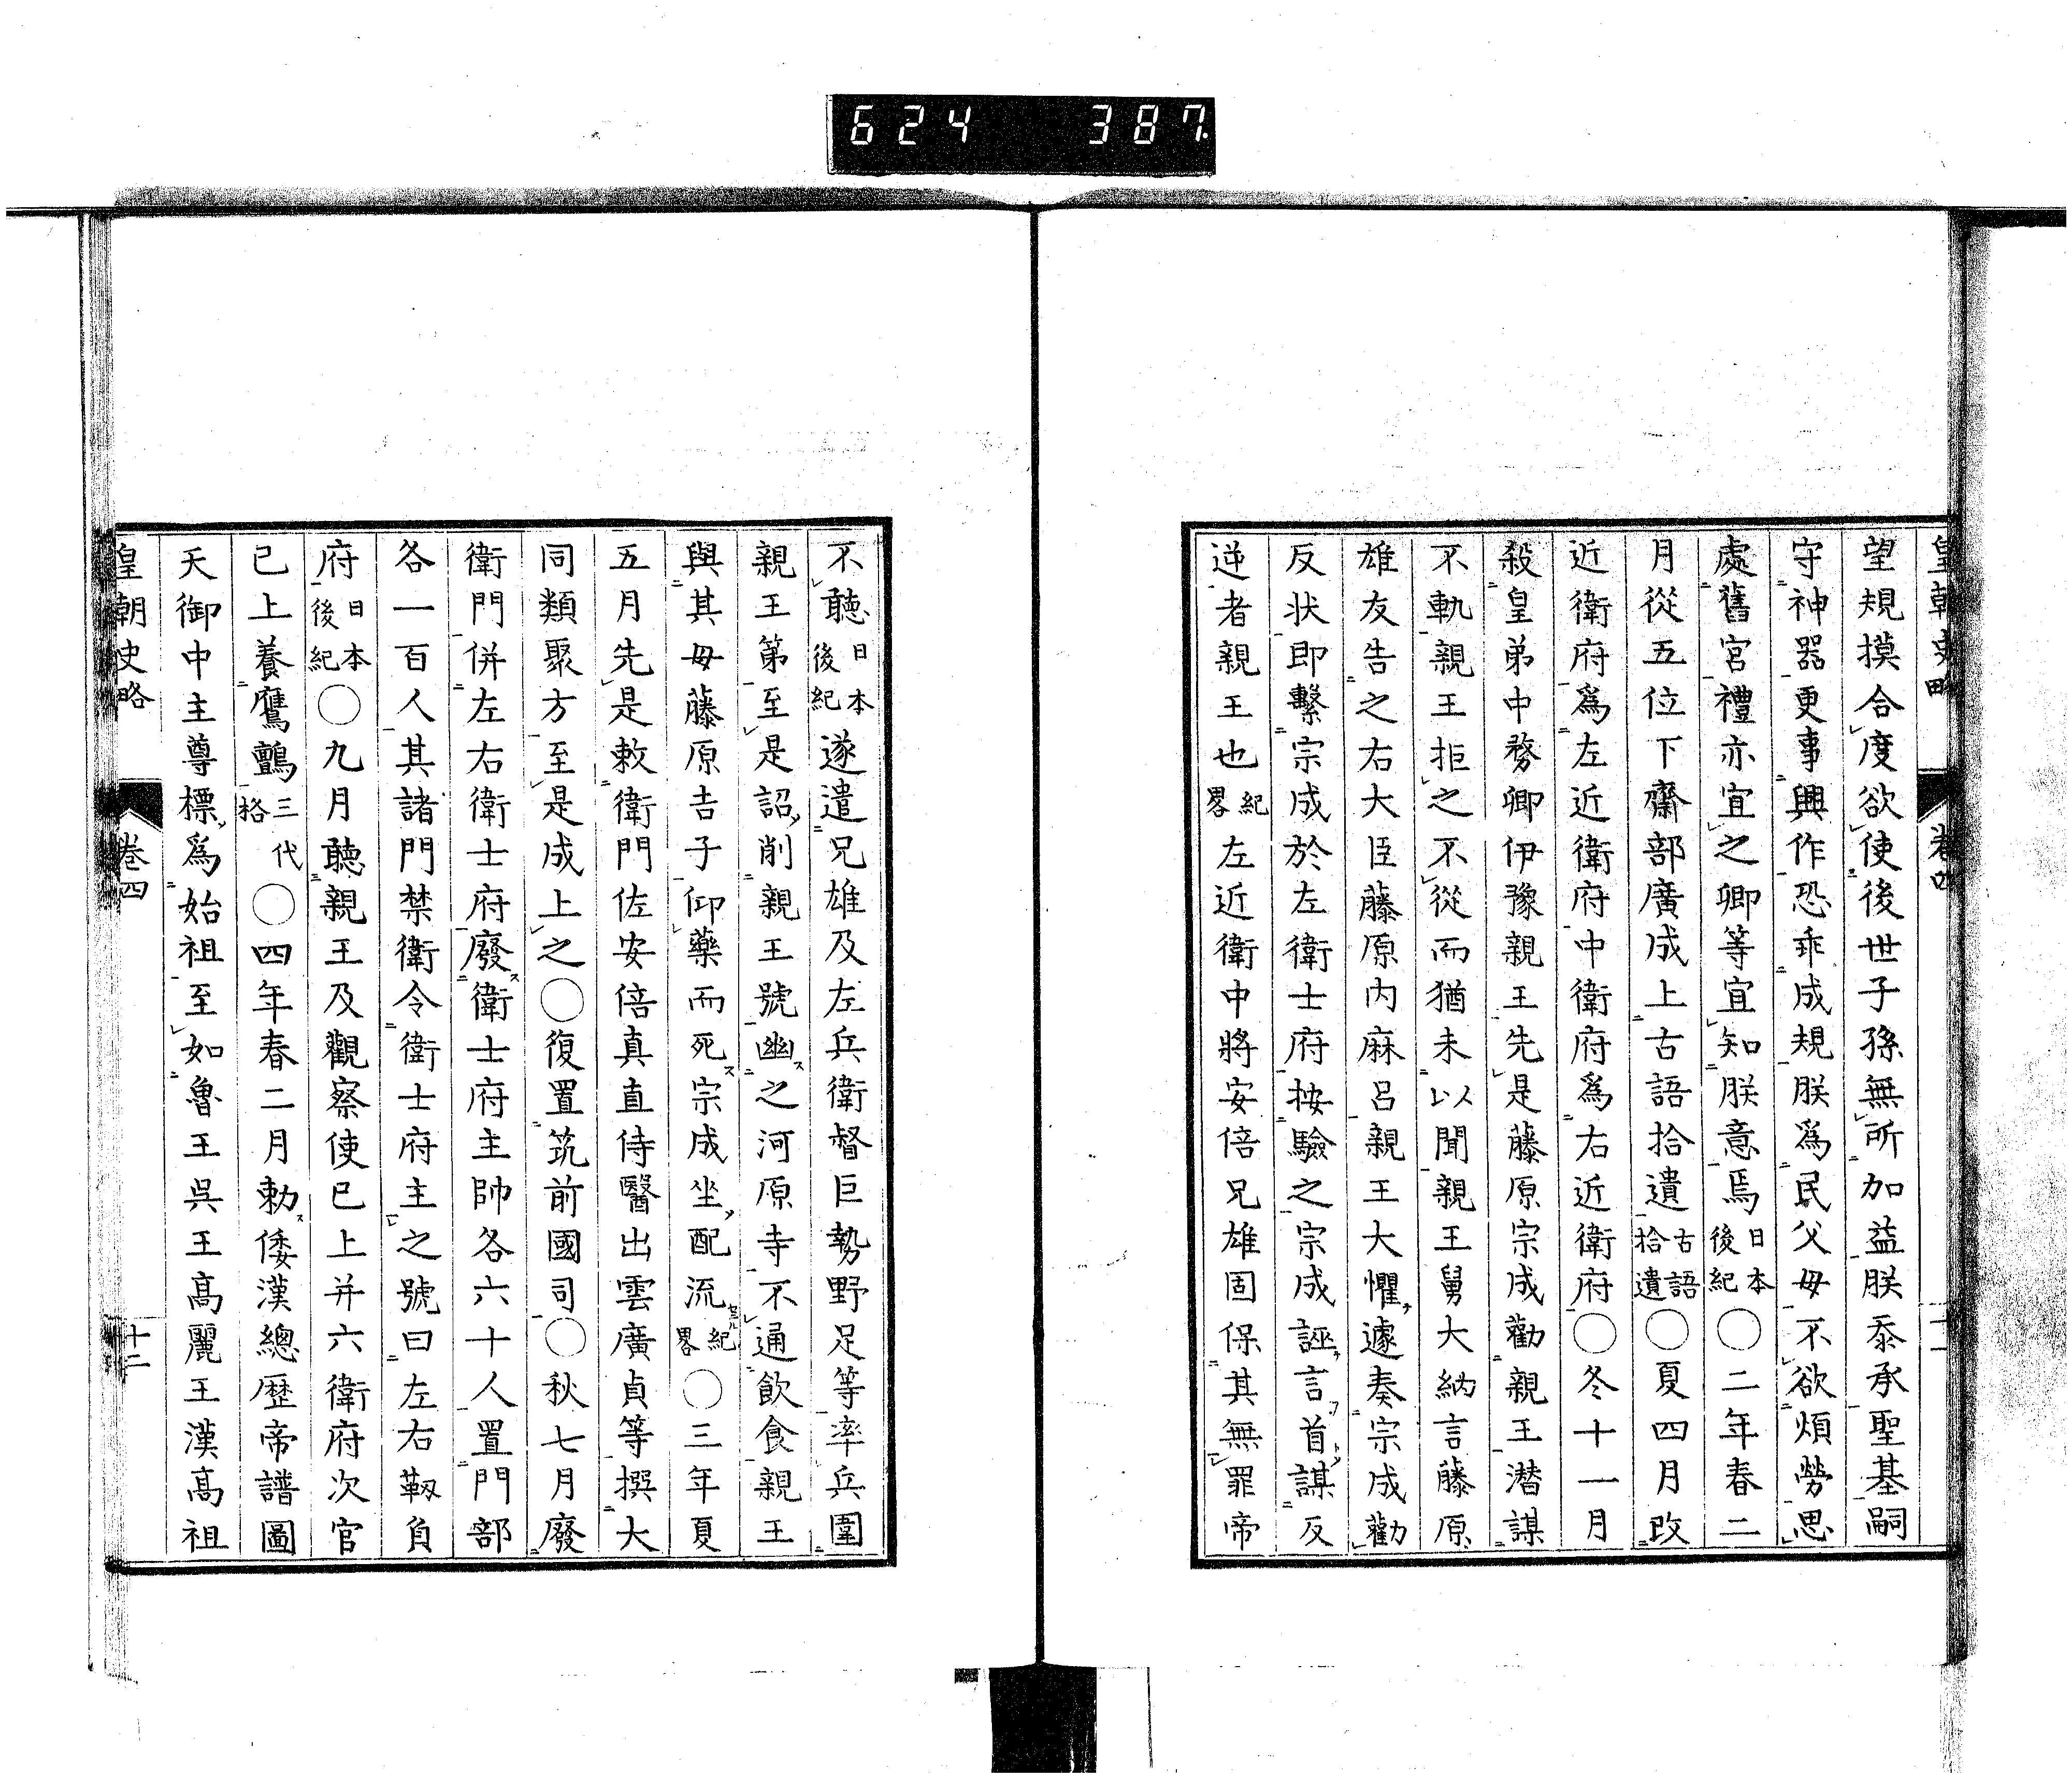 624 387
皇朝史略 卷四 十一
望規摸合度欲使後世子孫無所加益朕忝承聖基嗣
守神器更事興作恐乖成規朕爲民父母不欲煩勞思
處舊宮禮亦宜之卿等宜知朕意焉日本後紀〇二年春二
月從五位下齋部廣成上古語拾遺古語拾遺〇夏四月改
近衛府爲左近衛府中衛府爲右近衛府〇冬十一月
殺皇弟中務卿伊豫親王先是藤原宗成勸親王潜謀
不軌親王拒之不從而猶未以聞親王舅大納言藤原
雄友告之右大臣藤原内麻呂親王大懼遽奏宗成勸
反状即繫宗成於左衛士府按驗之宗成誣言首謀反
逆者親王也紀畧左近衛中將安倍兄雄固保其無罪帝
不聽日本後紀遂遣兄雄及左兵衛督巨勢野足等率兵圍
親王第至是詔削親王號幽之河原寺不通飲食親王
與其母藤原吉子仰藥而死宗成坐配流紀畧〇三年夏
五月先是敕衛門佐安倍真直侍醫出雲廣貞等撰大
同類聚方至是成上之〇復置筑前國司〇秋七月廢
衛門併左右衛士府廢衛士府主帥各六十人置門部
各一百人其諸門禁衛令衛士府主之號曰左右靱負
府日本後紀〇九月聽親王及觀察使已上并六衛府次官
已上養鷹鸇三代格〇四年春二月勅倭漢總歷帝譜圖
天御中主尊標爲始祖至如魯王吳王高麗王漢高祖
皇朝史略 卷四 十二